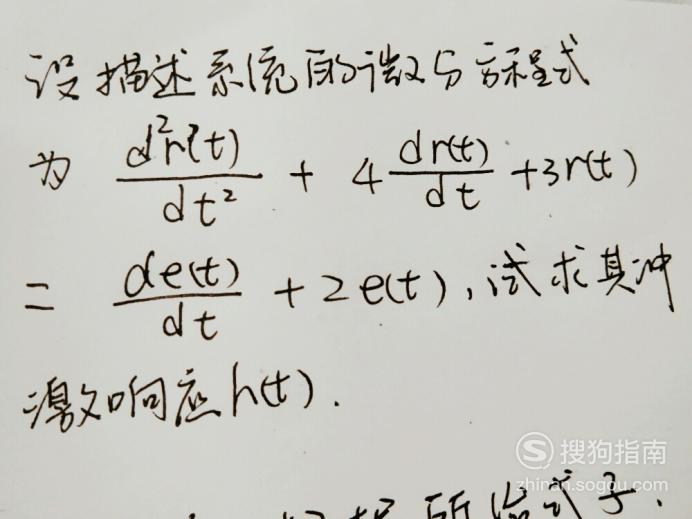 设描述系统的微分方程式
为 d²r(t)/dt² + 4 dr(t)/dt + 3r(t)
= de(t)/dt + 2e(t), 试求其冲
激响应h(t).
搜狗指南
zhinan.sogou.com
所给式子.